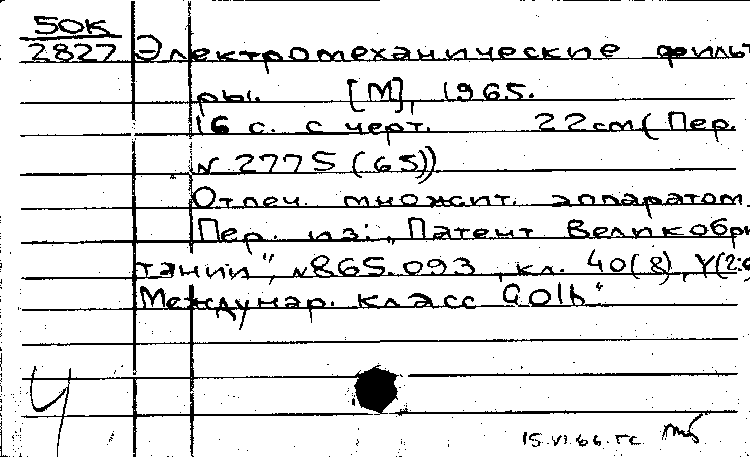 50К
2827 Электромеханические фильт
ры. [М], 1965.
16 с. с черт. 22 см (Пер.
N 2775 (65))
Отпеч. множит. аппаратом.
Пер. из: „Патент Великобри
тании", N 865.093, кл. 40(8), Y(2:
Междунар. класс G01b."
Ч
15.VI.66. гс